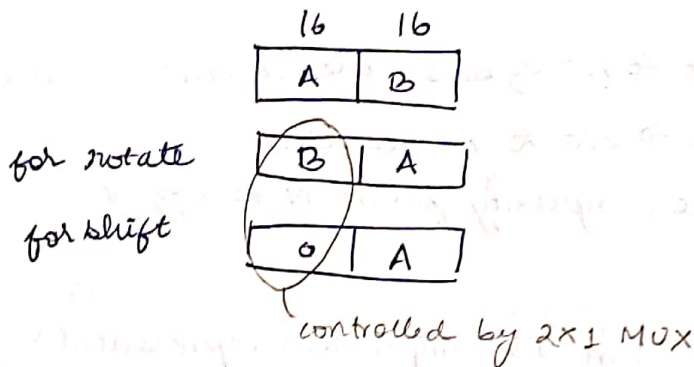 16 16
A B
for rotate B A
for shift 0 A
controlled by 2×1 MUX